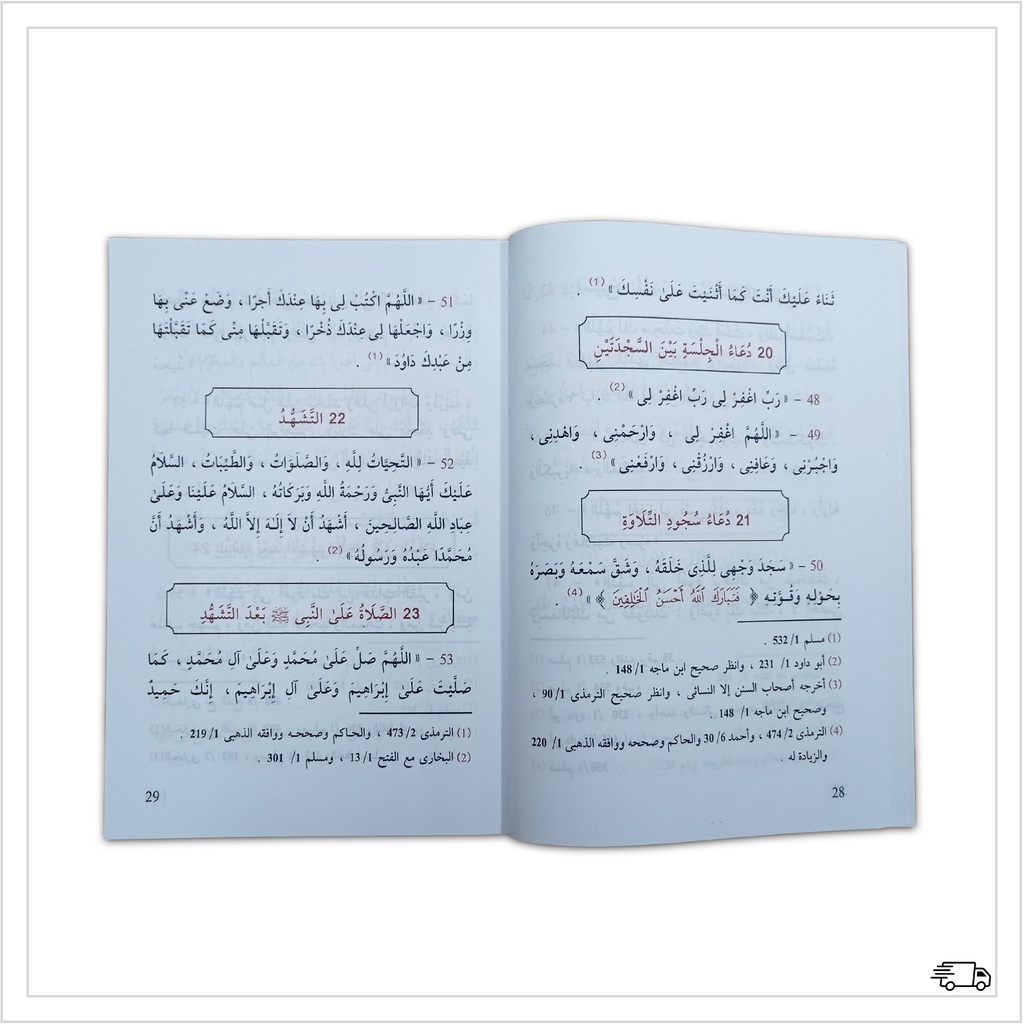 ثَنَاءً عَلَيْكَ أَنْتَ كَمَا أَثْنَيْتَ عَلَىٰ نَفْسِكَ » (1) .
20 دُعَاءُ الْجِلْسَةِ بَيْنَ السَّجْدَتَيْنِ
48 – « رَبِّ اغْفِرْ لِى رَبِّ اغْفِرْ لِى » (2) .
49 – « اللَّهُمَّ اغْفِرْ لِى ، وَارْحَمْنِى ، وَاهْدِنِى ،
وَاجْبُرْنِى ، وَعَافِنِى ، وَارْزُقْنِى ، وَارْفَعْنِى » (3) .
21 دُعَاءُ سُجُودِ التِّلَاوَةِ
50 – « سَجَدَ وَجْهِى لِلَّذِى خَلَقَهُ ، وَشَقَّ سَمْعَهُ وَبَصَرَهُ
بِحَوْلِهِ وَقُوَّتِهِ ﴿ فَتَبَارَكَ اللَّهُ أَحْسَنُ الْخَالِقِينَ ﴾ » (4) .
(1) مسلم 1/ 532
(2) أبو داود 1/ 231 ، وانظر صحيح ابن ماجه 1/ 148 .
(3) أخرجه أصحاب السنن إلا النسائى ، وانظر صحيح الترمذى 1/ 90 ،
وصحيح ابن ماجه 1/ 148 .
(4) الترمذى 2/ 474 ، وأحمد 6/ 30 والحاكم وصححه ووافقه الذهبى 1/ 220
والزيادة له .
28
51 – « اللَّهُمَّ اكْتُبْ لِى بِهَا عِنْدَكَ أَجْرًا ، وَضَعْ عَنِّى بِهَا
وِزْرًا ، وَاجْعَلْهَا لِى عِنْدَكَ ذُخْرًا ، وَتَقَبَّلْهَا مِنِّى كَمَا تَقَبَّلْتَهَا
مِنْ عَبْدِكَ دَاوُدَ » (1) .
22 التَّشَهُّدُ
52 – « التَّحِيَّاتُ لِلَّهِ ، وَالصَّلَوَاتُ ، وَالطَّيِّبَاتُ ، السَّلَامُ
عَلَيْكَ أَيُّهَا النَّبِىُّ وَرَحْمَةُ اللَّهِ وَبَرَكَاتُهُ ، السَّلَامُ عَلَيْنَا وَعَلَىٰ
عِبَادِ اللَّهِ الصَّالِحِينَ ، أَشْهَدُ أَنْ لَا إِلَـٰهَ إِلَّا اللَّهُ ، وَأَشْهَدُ أَنَّ
مُحَمَّدًا عَبْدُهُ وَرَسُولُهُ » (2) .
23 الصَّلَاةُ عَلَىٰ النَّبِى ﷺ بَعْدَ التَّشَهُّدِ
53 – « اللَّهُمَّ صَلِّ عَلَىٰ مُحَمَّدٍ وَعَلَىٰ آلِ مُحَمَّدٍ ، كَمَا
صَلَّيْتَ عَلَىٰ إِبْرَاهِيمَ وَعَلَىٰ آلِ إِبْرَاهِيمَ ، إِنَّكَ حَمِيدٌ
(1) الترمذى 2/ 473 ، والحاكم وصححه ووافقه الذهبى 1/ 219 .
(2) البخارى مع الفتح 1/ 13 ، ومسلم 1/ 301 .
29